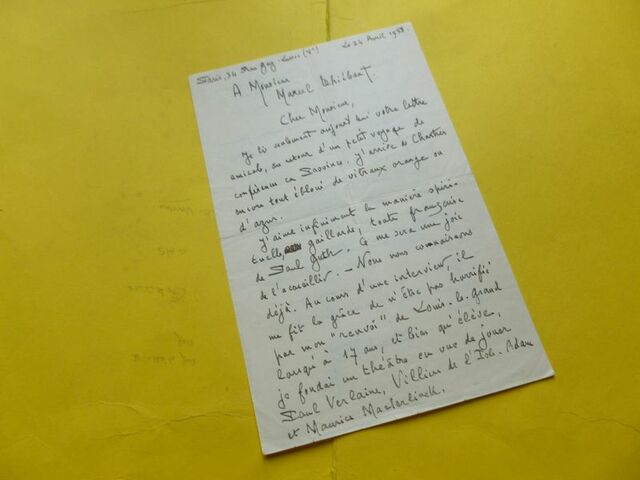 Paris, 34 Rue Gay-Lussac (Ve) Le 24 Avril 19
A Monsieur
Marcel Thiébaut.
Cher Monsieur,
Je lis seulement aujourd'hui votre lettre
amicale, au retour d'un petit voyage de
conférence en Province. J'arrive de Chartres
encore tout ébloui de vitraux orange ou
d'azur.
J'aime infiniment la manière spiri-
tuelle, gaillarde, toute française
de Paul Guth. Ce me sera une joie
de l'accueillir. - Nous nous connaissons
déjà. Au cours d'une interview, il
me fit la grâce de n'être pas horrifié
par mon "renvoi" de Louis-le-Grand
lorsqu'à 17 ans, et bien qu'élève,
je fondai un théâtre en vue de jouer
Paul Verlaine, Villiers de l'Isle-Adam
et Maurice Maeterlinck.